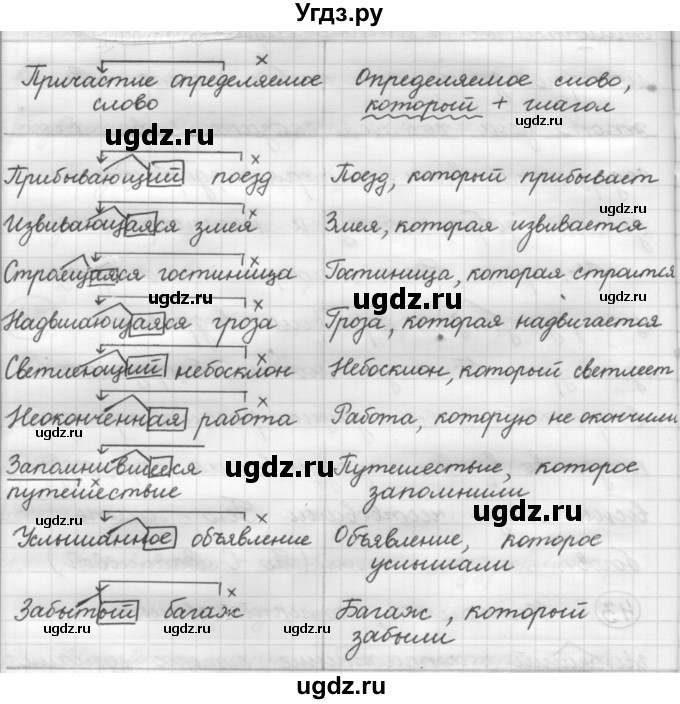 Угдз.ру
Причастие определяемое Определяемое слово,
слово который + глагол
ugdz.ru
ugdz.ru
Прибывающий поезд Поезд, который прибывает
ugdz.ru
Извивающаяся змея Змея, которая извивается
Строящаяся гостиница Гостиница, которая строится
ugdz.ru ugdz.ru
Надвигающаяся гроза Гроза, которая надвигается
Светлеющий небосклон Небосклон, который светлеет
Неоконченная работа Работа, которую не окончили
ugdz.ru
Запомнившееся Путешествие, которое
ugdz.ru
путешествие запомнили
ugdz.ru ugdz.ru
Услышанное объявление Объявление, которое
услышали
Забытый багаж Багаж, который
забыли
ugdz.ru ugdz.ru ugdz.ru ugdz.ru
ugdz.ru